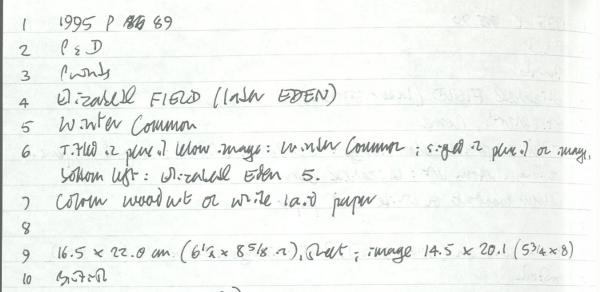 1 1995 P 89
2 P & D
3 Prints
4 Elizabeth FIELD (later EDEN)
5 Winter Common
6 Titled in pencil below image: Winter Common; signed in pencil on image,
bottom left: Elizabeth Eden 5.
7 Colour woodcut on white laid paper
8
9 16.5 x 22.0 cm (6 1/2 x 8 5/8 in), sheet; image 14.5 x 20.1 (5 3/4 x 8)
10 British